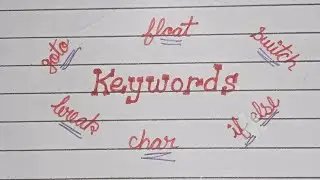 float
goto
switch
Keywords
break
if else
char